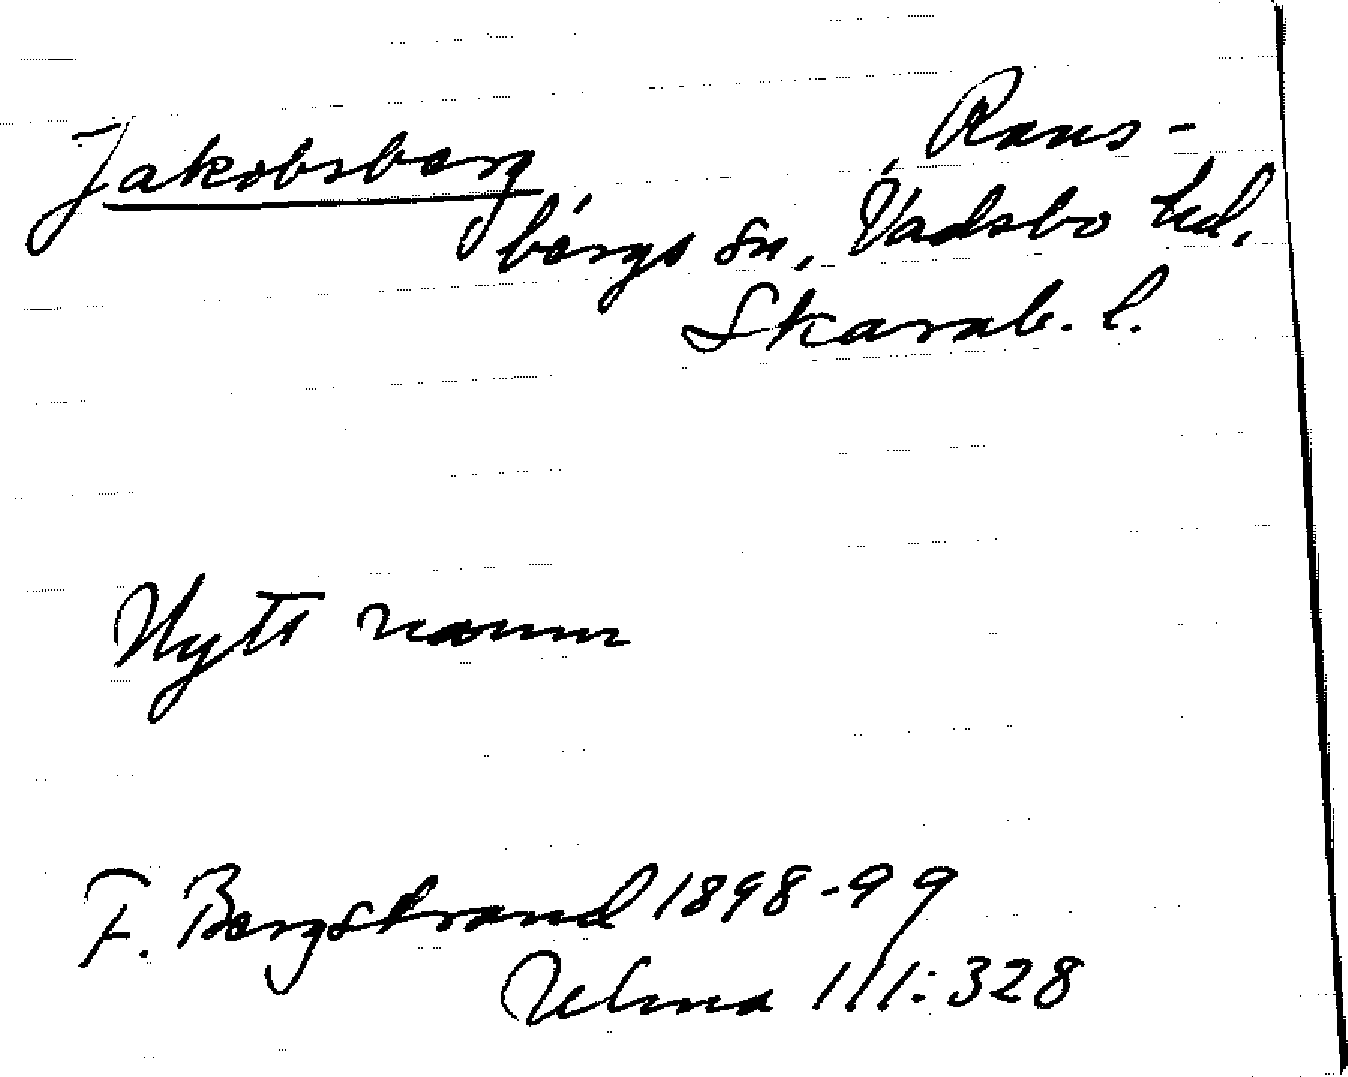 Jakobsberg Rans-
bergs sn, Vadsbo hd,
Skarab. l.
Nytt namn
F. Bergstrand 1898-99
Ulma 111:328